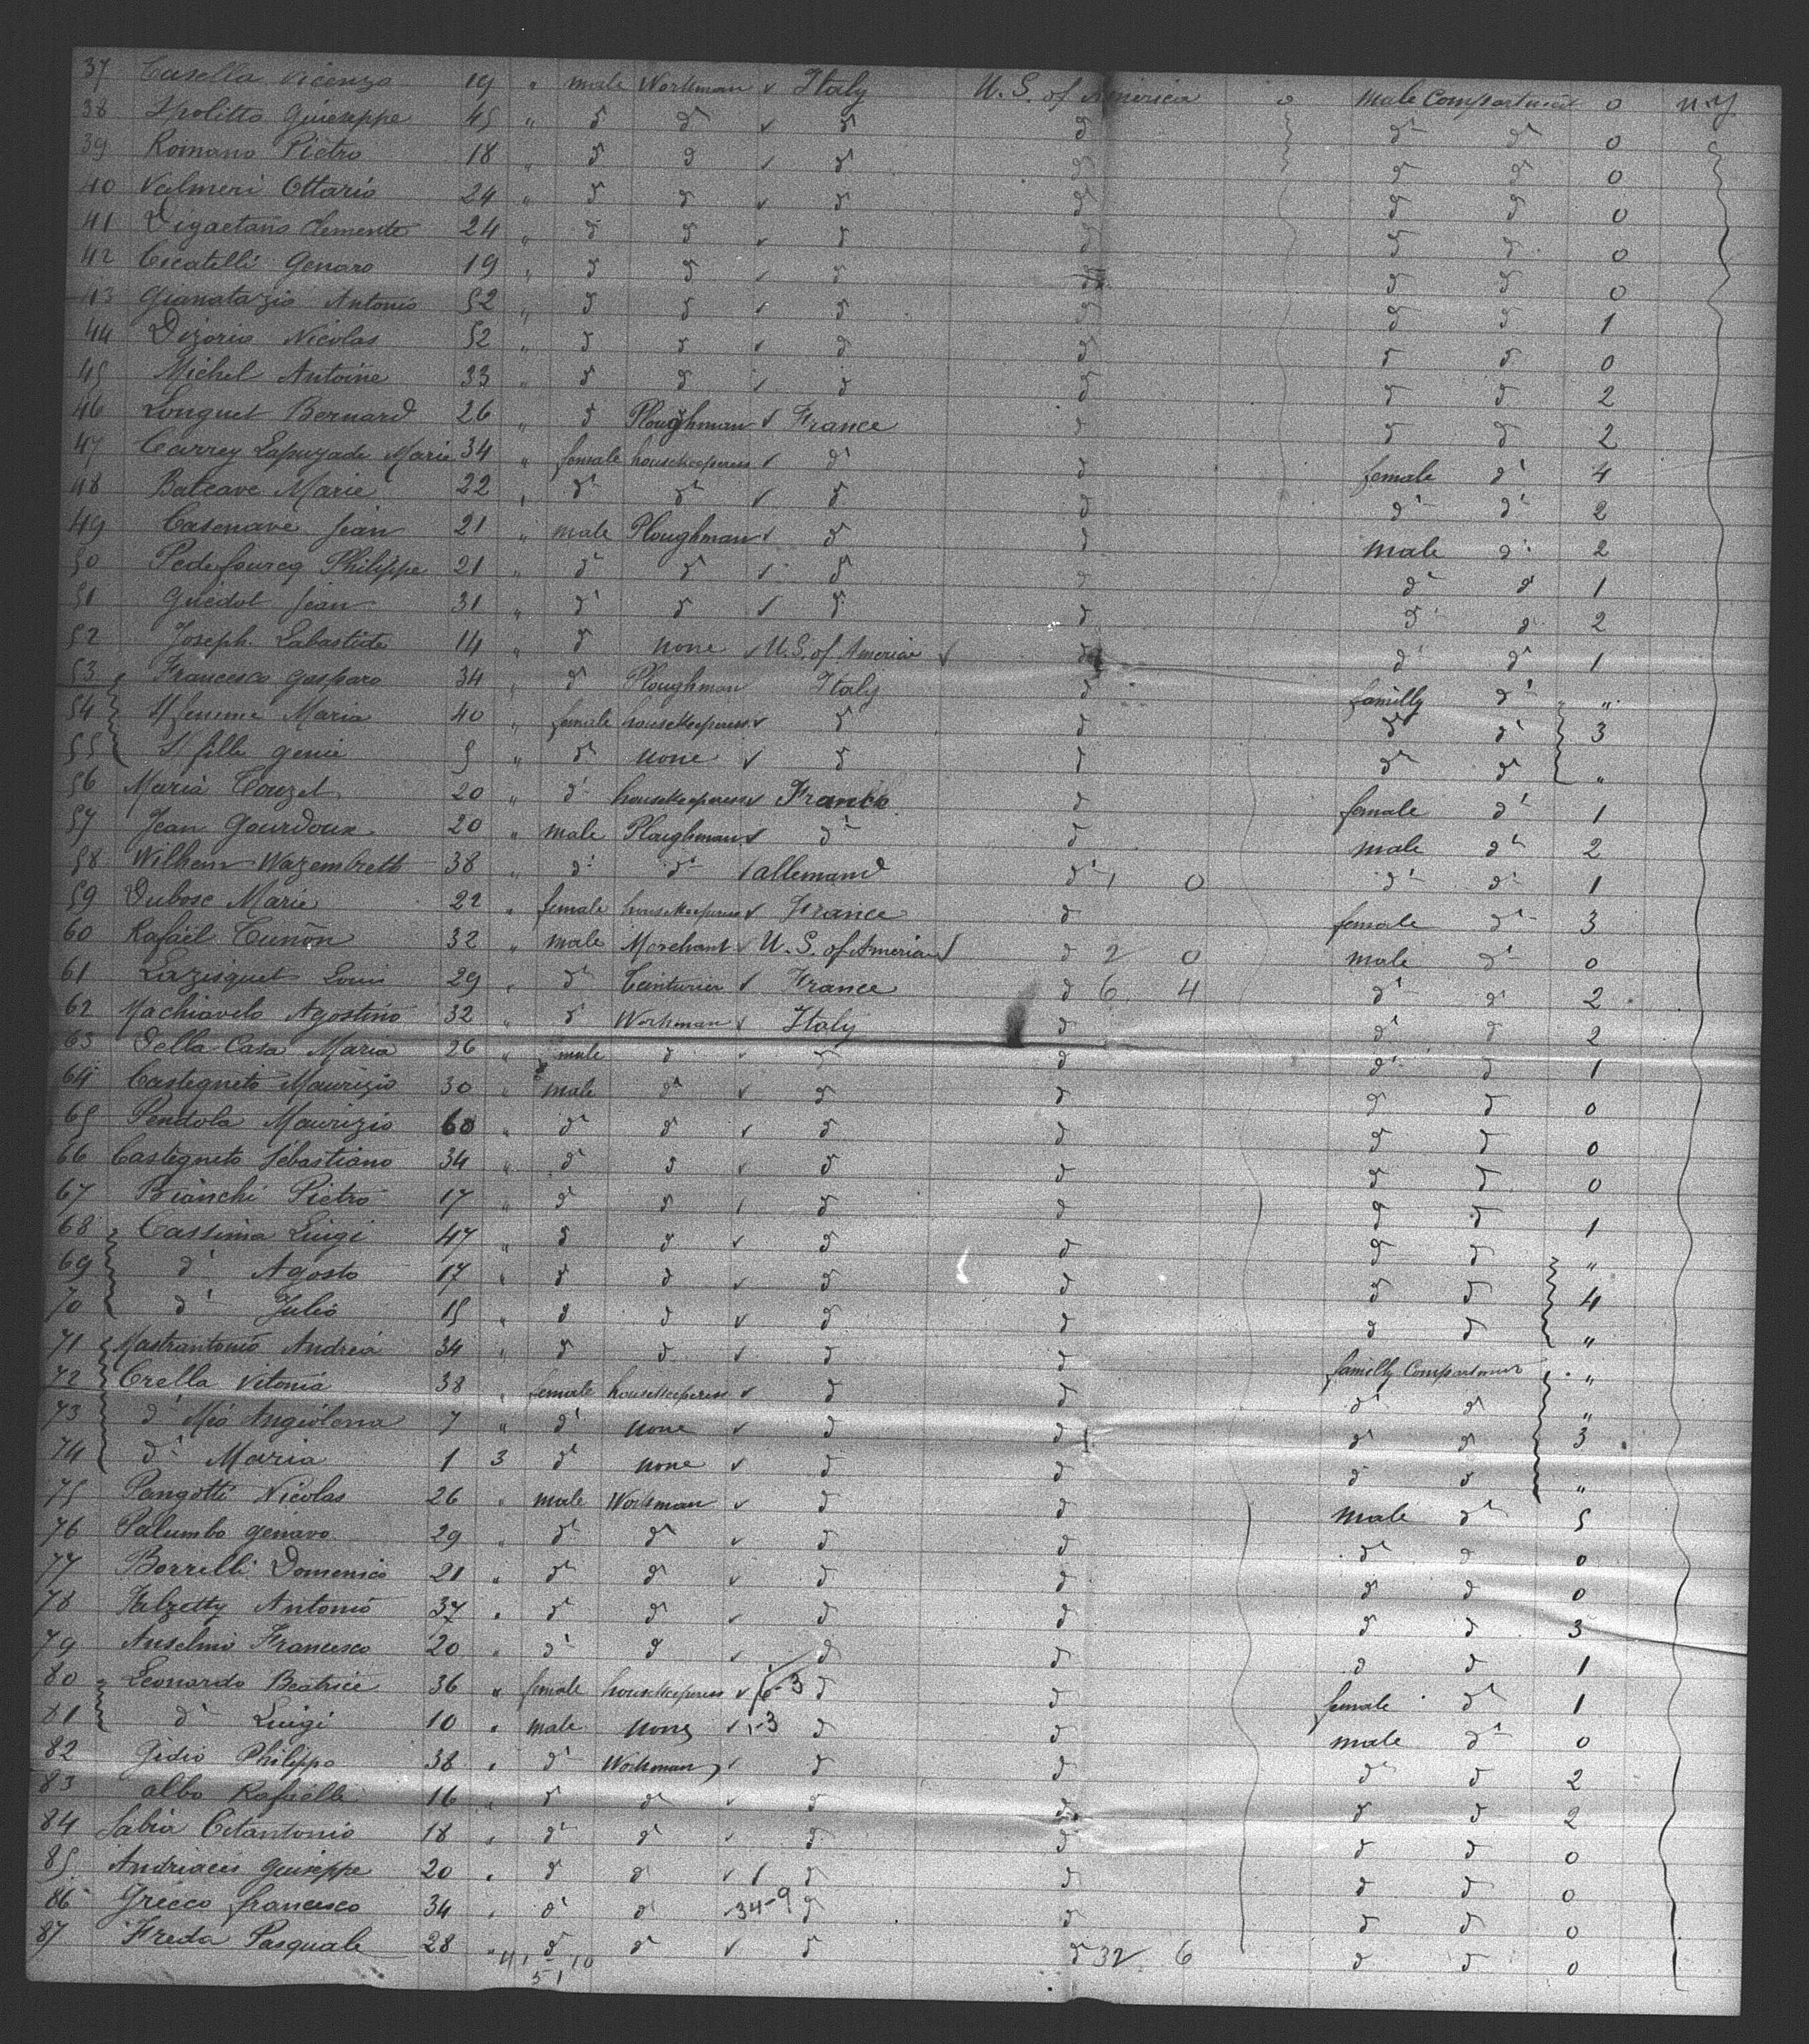 37 Casella Vicenzo 19 " male Workman v Italy U.S. of America o Male Compartment o N.Y
38 Ipolitto Guiseppe 45 " d° d° v d° d° d° d° 0
39 Romano Pietro 18 " d° d v d° d d d° 0
40 Valmeri Ottario 24 " d d v d d d d 0
41 Digaetano Clemente 24 " d d v d d d d 0
42 Cicatelli Genaro 19 " d d v d d d d 0
43 Gianatazio Antonio 52 " d d v d d d d 1
44 Dizorio Nicolas 52 " d d v d d d d 0
45 Michel Antoine 33 " d d v d d d d 2
46 Longuet Bernard 26 " d Ploughman v France d d d 2
47 Carrey Lapuzade Marie 34 " female housekeeperess v d° d female d° 4
48 Bateave Marie 22 " d° d° v d d d° d° 2
49 Casenave Jean 21 " male Ploughman v d d male d° 2
50 Pedefourcq Philippe 21 " d° d° v d d d° d 1
51 Guedot Jean 31 " d° d v d d d° d 2
52 Joseph Labastide 14 " d none v U.S. of America v d d° d° 1
53 Francesco Gasparo 34 " d° Ploughman Italy d familly d° "
54 S femme Maria 40 " female housekeeperess v d° d d° d° 3
55 S fille genie 5 " d° none v d d d° d° "
56 Maria Touzet 20 " d° housekeeperess v France d female d° 1
57 Jean Gourdoux 20 " male Ploughman v d° d male d° 2
58 Wilhem Wazembreth 38 " d° d° v allemand d° 1 0 d° d° 1
59 Dubosc Marie 22 " female housekeeperess v France d female d° 3
60 Rafaël Cunôn 32 " male Merchant v U.S. of America v d 2 0 male d° 0
61 Lazisquet Louis 29 " d° Teinturier v France d 6 4 d° d° 2
62 Machiavelo Agostino 32 " d° Workman v Italy d d° d 2
63 Della Casa Maria 26 " female d v d d d° d 1
64 Castegneto Maurizio 30 " male d° v d d d d 0
65 Pendola Maurizio 60 " d° d v d d d d 0
66 Castegneto Sébastiano 34 " d d v d d d d 0
67 Bianchi Pietro 17 " d° d v d d d d 1
68 Cassima Luigi 47 " d d v d d d d "
69 d° Agosto 17 " d d v d d d d 4
70 d° Julio 15 " d d v d d d d "
71 Mastrantonio Andrea 34 " d d v d d familly Compartment "
72 Crella Vitonia 38 " female housekeeperess v d d d° d° "
73 d° Mio Angiolena 7 " d° none v d d d° d° 3
74 d° Maria 1 3 d° none v d d d d "
75 Pangotti Nicolas 26 " male Workman v d d male d° 5
76 Palumbo genaro 29 " d° d° v d d d° d 0
77 Borrelli Domenico 21 " d° d° v d d d° d 0
78 Falzetty Antonio 37 " d° d° v d d d d 3
79 Anselmo Francesco 20 " d° d v d d d d 1
80 Leonardo Beatrice 36 " female housekeeperess v 6-3 d d female d° 1
81 d° Luigi 10 " male none v 1-3 d d male d° 0
82 Gidio Philippo 38 " d° Workman v d d d° d 2
83 albo Rafaëlle 16 " d° d° v d d d d 2
84 Sabia Citantonio 18 " d° d° v d d d d 0
85 Andriacis Guiseppe 20 " d d v d d d d 0
86 Grecco francesco 34 " d° d 34-9 d d d d 0
87 Freda Pasquale 28 " d d v d d 32 6 d d 0
41 - 10
51